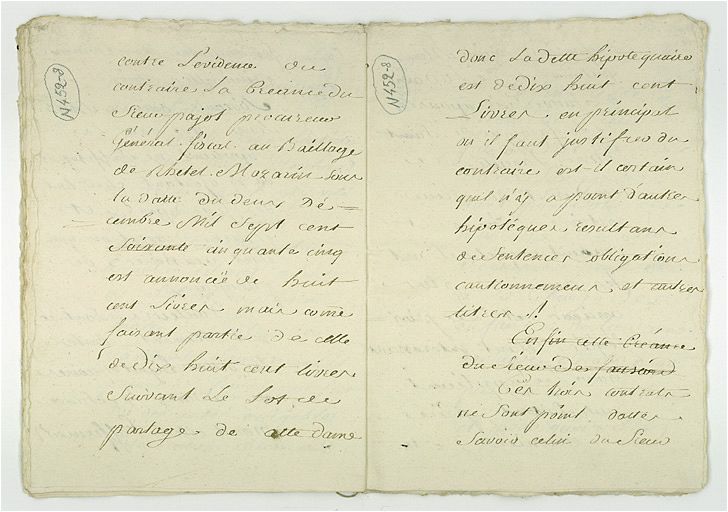 N452-8
contre L'evidence du
contraire La Creance du
Sieur pajot procureur
General fiscal au Bailliage
de Rhetel Mazarin sous
la datte du deux Dé-
cembre Mil Sept cent
Soixante cinquante cinq
est annoncée de huit
cent Livres mais comme
faisant partie de celle
de dix huit cent livres
Suivant Le Lot de
partage de cette dame
N452-8
donc La dette hipotequaire
est de dix huit cent
Livres en principal
ou il faut justifier du
contraire est il certain
quil n'y a point d'autres
hipotéques resultans
de Sentences obligations
cautionnemens et autres
titres
Enfin cette Créance
du Sieur
Ces trois contrats
ne Sont point dattés
Savoir celui du Sieur